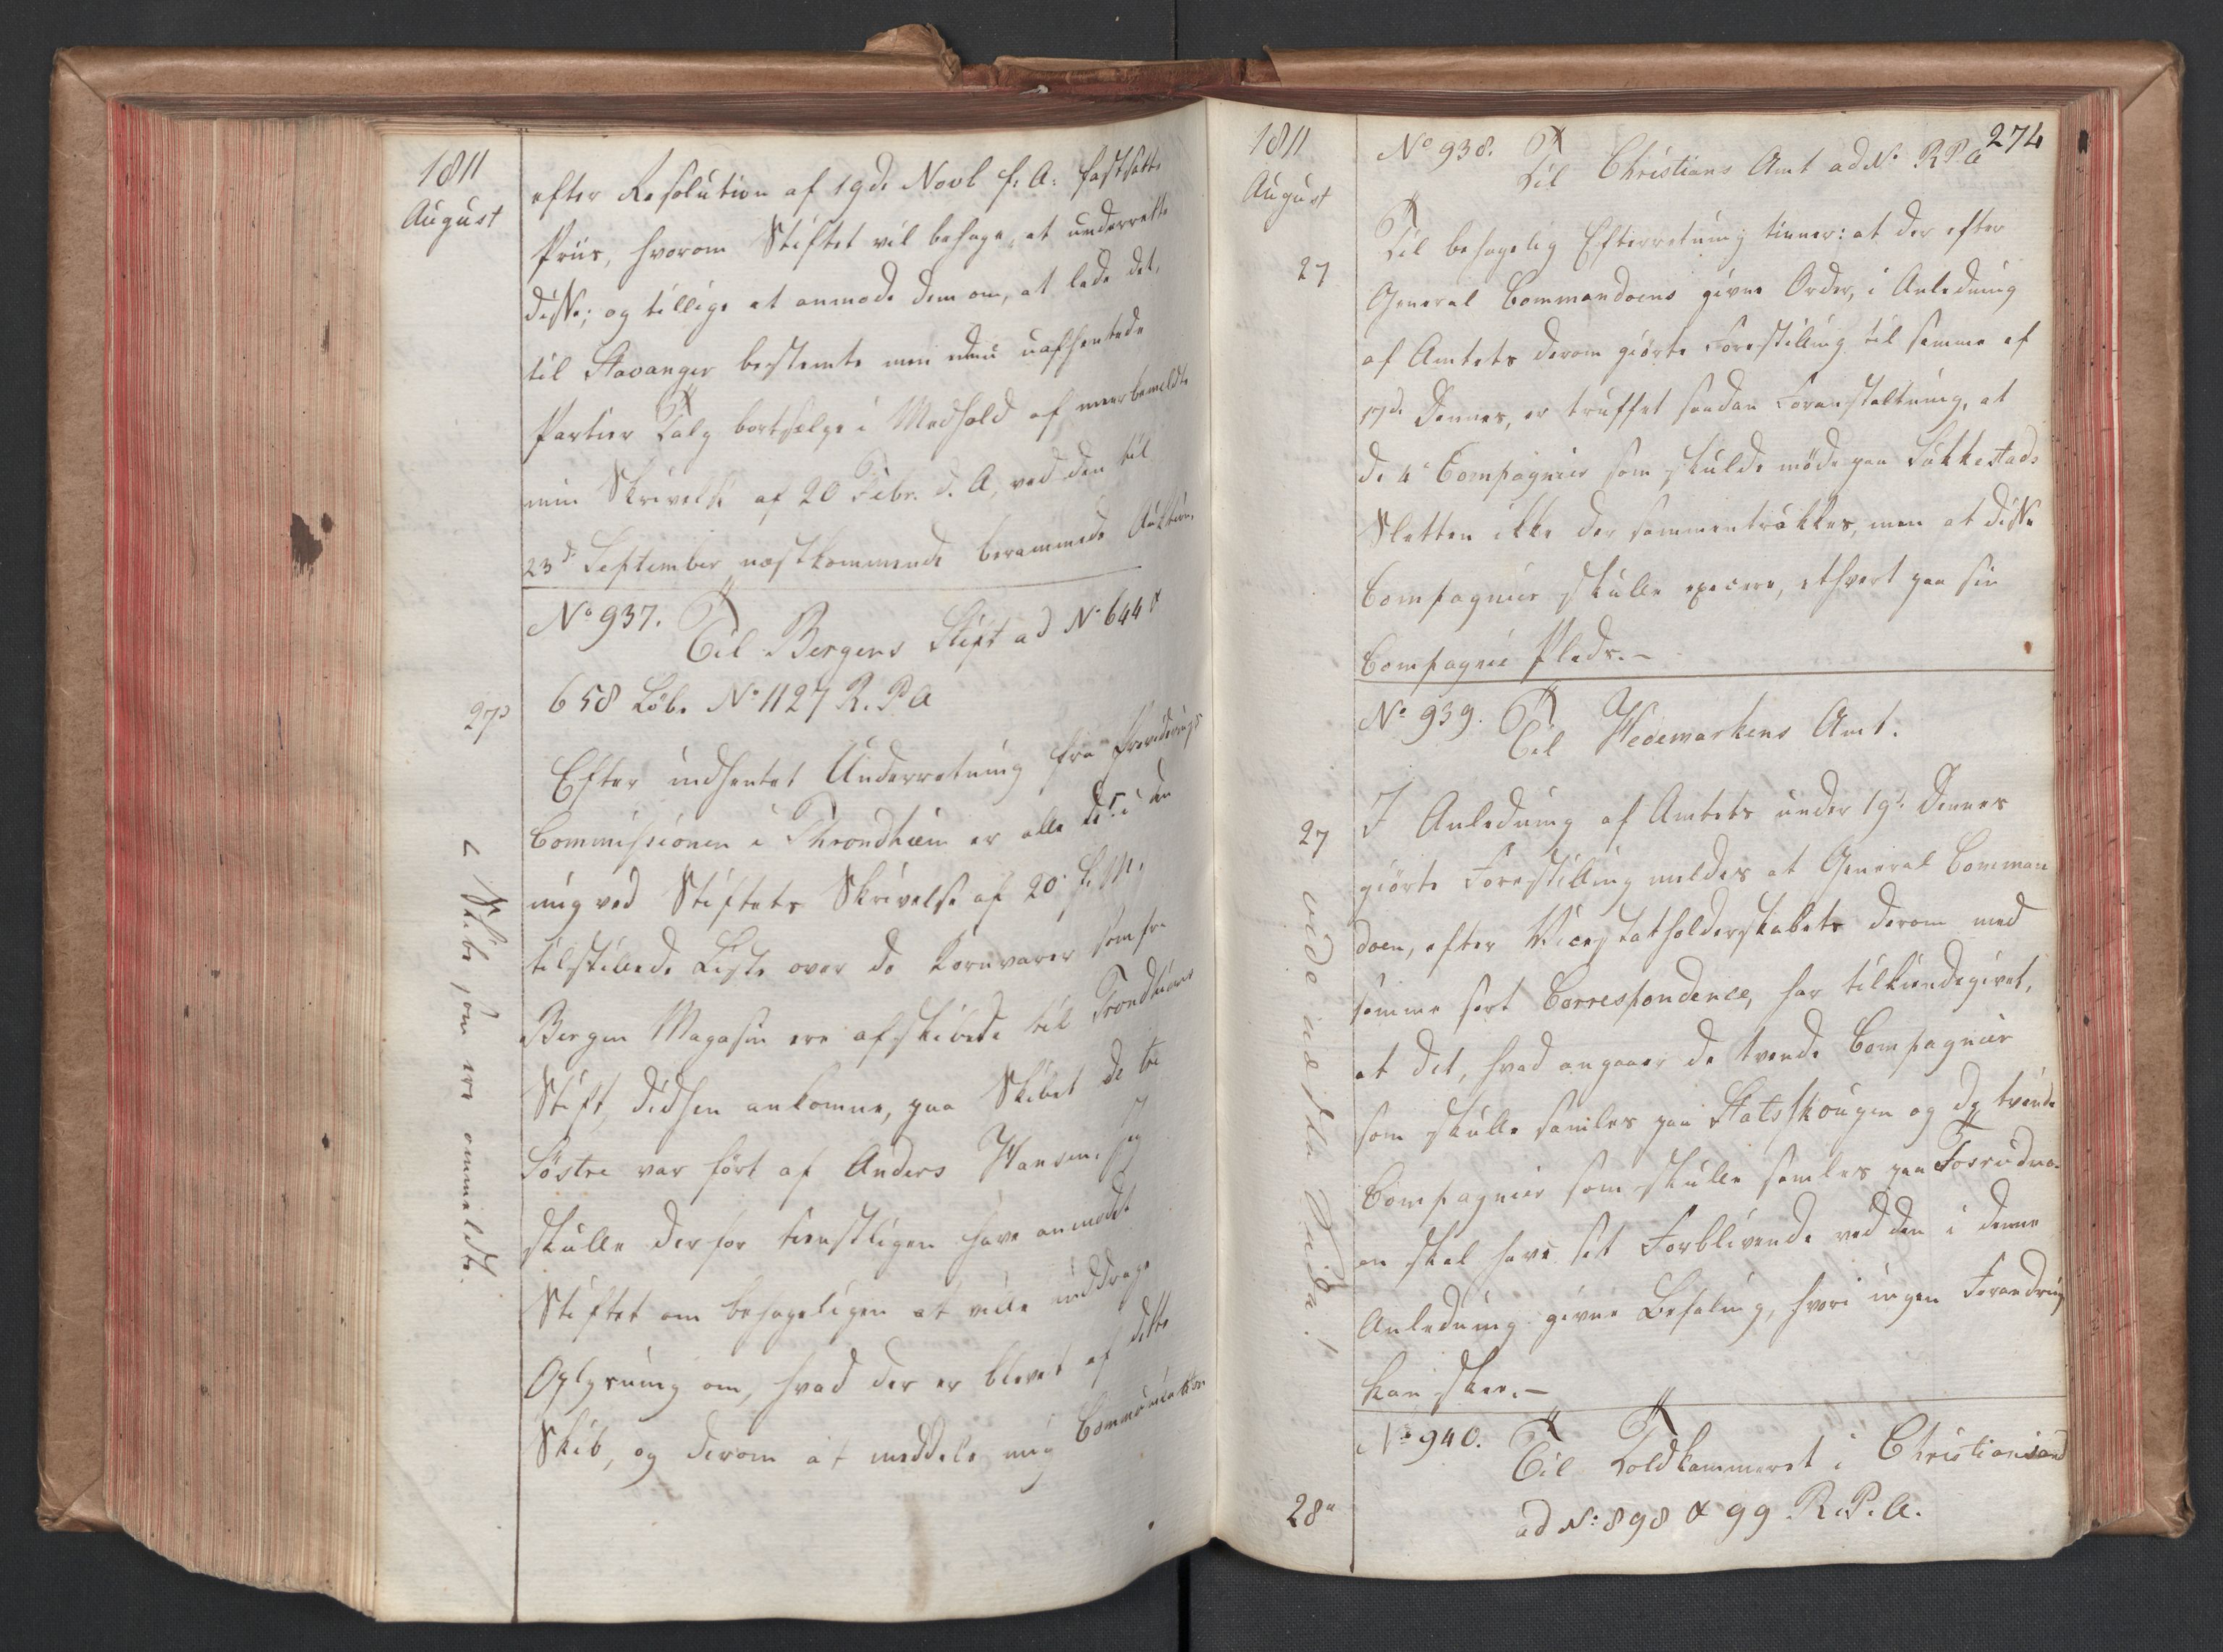 1811
August
efter Resolution af 19de Novb f: A: fastsatte
Priis, hvorom Stiftet vil behage, at underrette
disse; og tillige at anmode dem om, at lade det,
til Stavanger bestemte men endnu uafhentede
Partier Talg bortsælge i Medhold af meerbemeldte
min Skrivelse af 20 Febr. d. A, ved den til
23de September næstkommende berammede Auktion.
No 937.
Til Bergens Stift ad No 644 &
658 Löb. No 1127 R. P. A
27
Efter indhentet Underretning fra Provideringss
Commissionen i Throndhiem er alle de i den
mig ved Stiftets Skrivelse af 20 f. M.
tilstillede Liste over de Kornvarer som fra
Bergen Magasin ere afskibede til Trondhiems
Stift, didhen ankomne, paa Skibet de tre
Söstre var ført af Anders Hansen. Jeg
skulle derfor tienstligen have anmodet
Stiftet om behageligen at ville inddrage
Oplysning om, hvad der er blevet af dette
Skib, og derom at meddele mig Communication
Skibe, som ere anmeldte.
1811
August
274
No 938.
Til Christians Amt ad No R P A
27
Til behagelig Efterretning tiener: at der efter
General Commandoens givne Ordre, i Anledning
af Amtets derom giørte Forestilling til samme af
17de dennes, er truffet saadan Foranstaltning, at
de 4e Compagnier som skulde møde paa Lökkestads
Sletten ikke der sammentrækkes, men at disse
Compagnier skulle exercere, ethvert paa sin
Compagnie Plads. –
No 939.
Til Hedemarkens Amt.
27
I Anledning af Amtets under 19de dennes
giørte Forestilling meldes at General Comman
doen, efter Vicestatholderskabets derom med
samme ført Correspondence, har tilkiendegivet,
at det, hvad angaaer de tvende Compagnier
som skulle samles paa Statsskougen og de tvende
Compagnier som skulle samles paa Fosrudmo-
en skal have sit Forblivende ved den i denne
Anledning givne Befaling, hvori ingen Forandring
kan skee. –
vide næste Side!
No 940.
Til Toldkammeret i Christiansand
28
ad No: 898 & 99 R. P. A.